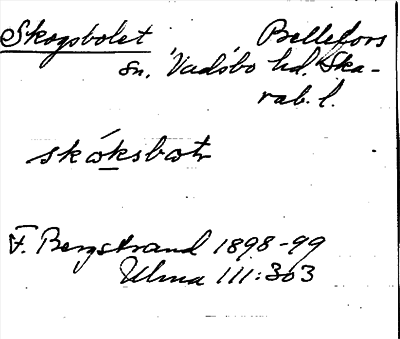 Skogsbolet Bellefors
sn. Vadsbo hd. Ska-
rab. l.
skóksbotr
F. Bergstrand 1898-99
Ulma 111:303